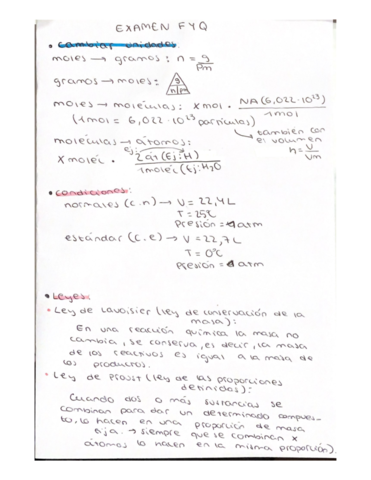 EXAMEN FYQ
• Cambiar unidades:
moles → gramos: n = g/Pm
gramos → moles: g n Pm
moles → moléculas: x mol · NA (6,022·10²³)/1 mol
(1 mol = 6,022·10²³ partículas)
también con
el volumen
n = V/Vm
moléculas → átomos:
ej:
x moléc · 2 át (Ej: H)/1 moléc (Ej: H₂O
• Condiciones:
normales (C.n) → V = 22,4 L
T = 25ºC
Presión = 1 atm
estándar (C.e) → V = 22,7 L
T = 0ºC
Presión = 1 atm
• Leyes:
• Ley de Lavoisier (ley de conservación de la
masa):
En una reacción química la masa no
cambia, se conserva, es decir, la masa
de los reactivos es igual a la masa de
los productos.
• Ley de Proust (ley de las proporciones
definidas):
Cuando dos o más sustancias se
combinan para dar un determinado compues-
to, lo hacen en una proporción de masa
fija. → siempre que se combinan x
átomos lo hacen en la misma proporción).